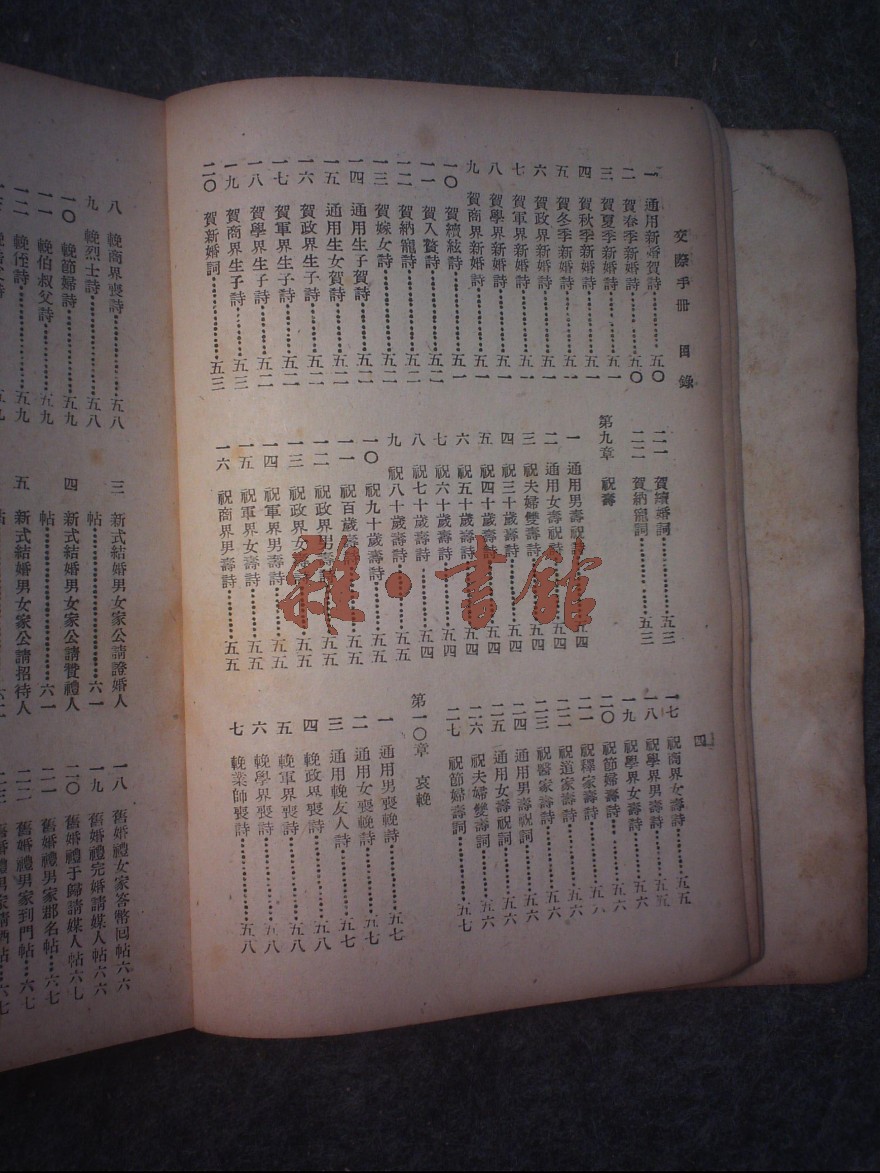 交際手冊 目錄
四
一 通用新婚賀詩 五〇
二 賀春季新婚詩 五〇
三 賀夏季新婚詩 五一
四 賀秋季新婚詩 五一
五 賀冬季新婚詩 五一
六 賀政界新婚詩 五一
七 賀軍界新婚詩 五一
八 賀學界新婚詩 五一
九 賀商界新婚詩 五一
一〇 賀續絃詩 五一
一一 賀入贅詩 五二
一二 賀納寵詩 五二
一三 賀嫁女詩 五二
一四 通用生子賀詩 五二
一五 通用生女賀詩 五二
一六 賀政界生子詩 五二
一七 賀軍界生子詩 五二
一八 賀學界生子詩 五二
一九 賀商界生子詩 五三
二〇 賀新婚詞 五三
二一 賀續婚詞 五三
二二 賀納寵詞 五三
第九章 祝壽
一 通用男壽祝詩 五四
二 通用女壽祝詩 五四
三 祝夫婦雙壽詩 五四
四 祝三十歲壽詩 五四
五 祝四十歲壽詩 五四
六 祝五十歲壽詩 五四
七 祝六十歲壽詩 五四
八 祝七十歲壽詩 五四
九 祝八十歲壽詩 五五
一〇 祝九十歲壽詩 五五
一一 祝百歲壽詩 五五
一二 祝政界男壽詩 五五
一三 祝政界女壽詩 五五
一四 祝軍界男壽詩 五五
一五 祝軍界女壽詩 五五
一六 祝商界男壽詩 五五
一七 祝商界女壽詩 五五
一八 祝學界男壽詩 五五
一九 祝學界女壽詩 五六
二〇 祝節婦壽詩 五六
二一 祝釋家壽詩 五六
二二 祝道家壽詩 五六
二三 祝醫家壽詩 五六
二四 通用男壽祝詞 五六
二五 通用女壽祝詞 五六
二六 祝夫婦雙壽詞 五六
二七 祝節婦壽詞 五七
第一〇章 哀輓
一 通用男喪輓詩 五七
二 通用女喪輓詩 五七
三 通用輓友人詩 五七
四 輓政界喪詩 五八
五 輓軍界喪詩 五八
六 輓學界喪詩 五八
七 輓業師喪詩 五八
八 輓商界喪詩 五八
九 輓烈士詩 五八
一〇 輓節婦詩 五九
一一 輓伯叔父詩 五九
一二 輓侄詩 五九
三 新式結婚男女家公請證婚人
帖 六一
四 新式結婚男女家公請贊禮人
帖 六一
五 新式結婚男女家公請招待人
一八 舊婚禮女家答幣回帖 六六
一九 舊婚禮完婚請媒人帖 六六
二〇 舊婚禮于歸請媒人帖 六七
二一 舊婚禮男家郡名帖 六七
二二 舊婚禮男家到門帖 六七
雜·書館